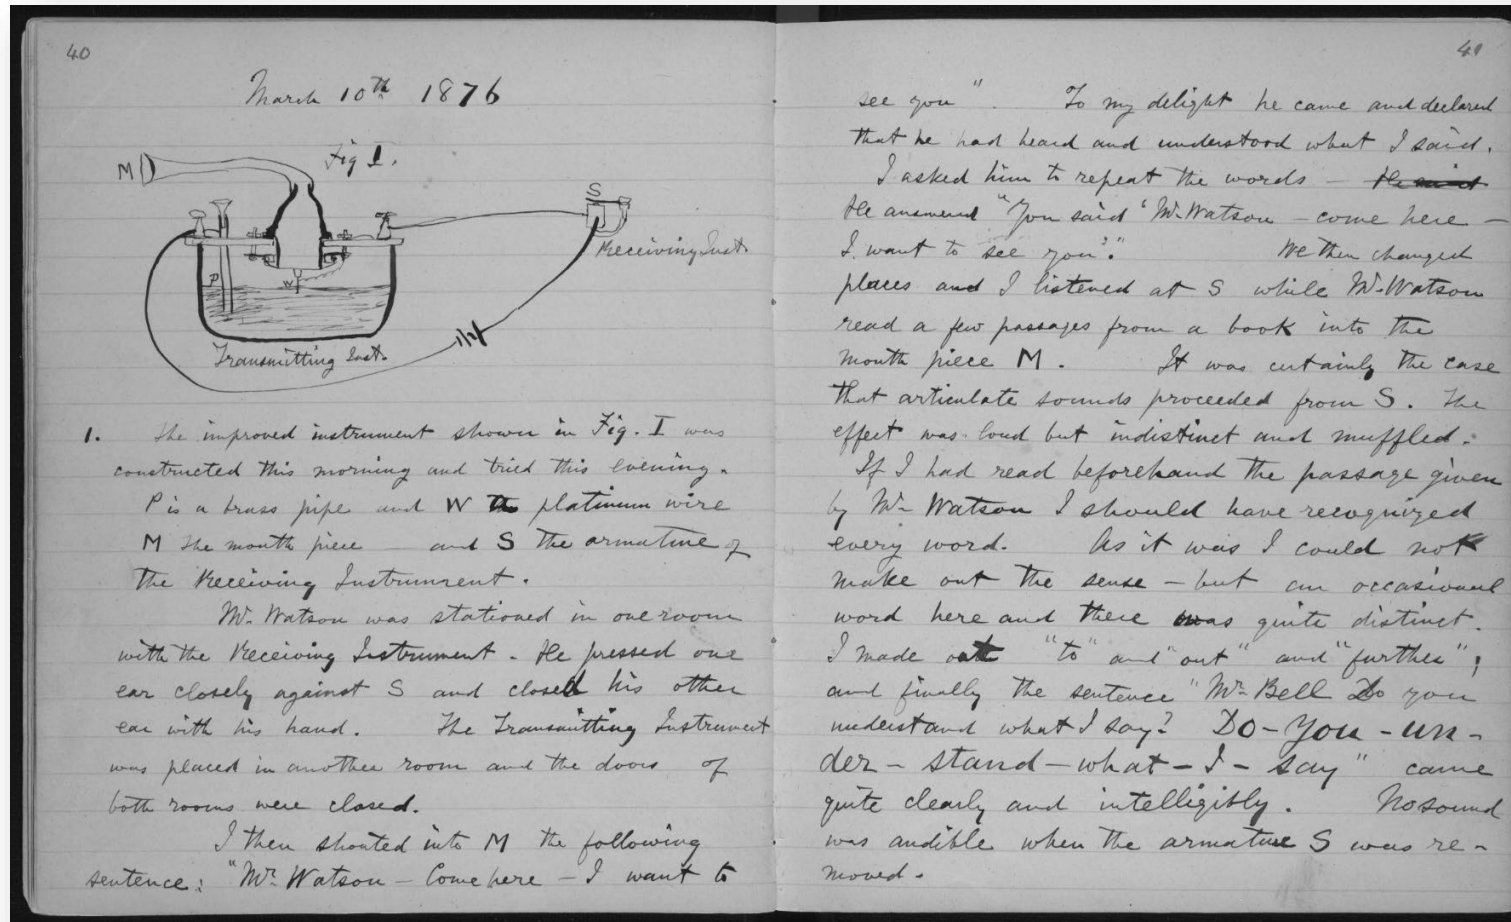 40
March 10th 1876
Fig I.
M
S
Receiving Inst.
P
W
Transmitting Inst.
1. The improved instrument shown in Fig. I was
constructed this morning and tried this evening.
P is a brass pipe and W the platinum wire
M the mouth piece — and S the armature of
the Receiving Instrument.
Mr. Watson was stationed in one room
with the Receiving Instrument. He pressed one
ear closely against S and closed his other
ear with his hand. The Transmitting Instrument
was placed in another room and the doors of
both rooms were closed.
I then shouted into M the following
sentence: "Mr. Watson — Come here — I want to
41
see you". To my delight he came and declared
that he had heard and understood what I said.
I asked him to repeat the words —
He answered "You said 'Mr. Watson — come here —
I want to see you'." We then changed
places and I listened at S while Mr. Watson
read a few passages from a book into the
mouth piece M. It was certainly the case
that articulate sounds proceeded from S. The
effect was loud but indistinct and muffled.
If I had read beforehand the passage given
by Mr. Watson I should have recognized
every word. As it was I could not
make out the sense — but an occasional
word here and there was quite distinct.
I made out "to" and "out" and "further";
and finally the sentence "Mr. Bell Do you
understand what I say? Do-You-un-
der-stand-what-I-say" came
quite clearly and intelligibly. No sound
was audible when the armature S was re-
moved.